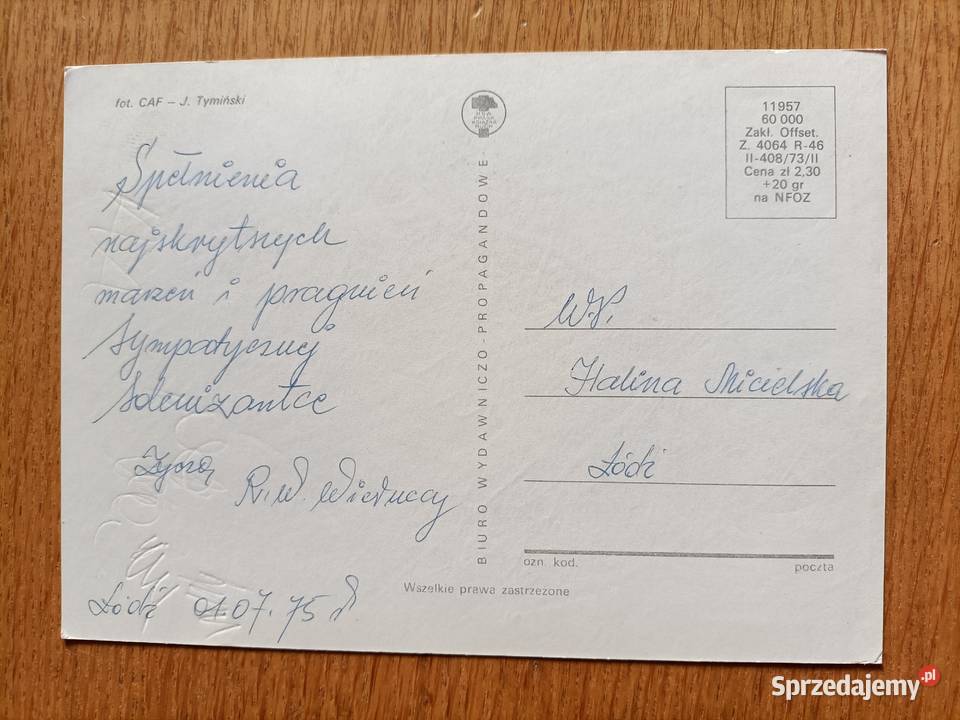 fot. CAF – J. Tymiński
Spełnienia
najskrytszych
marzeń i pragnień
sympatycznej
solenizantce
Życzą
R. W.
Łódź 01.07.75 r
BIURO WYDAWNICZO-PROPAGANDOWE
RSW
PRASA
KSIĄŻKA
RUCH
11957
60 000
Zakł. Offset.
Z. 4064 R-46
II-408/73/II
Cena zł 2,30
+20 gr
na NFOZ
W.P.
Halina Micielska
Łódź
ozn. kod.
poczta
Wszelkie prawa zastrzeżone
Sprzedajemy.pl